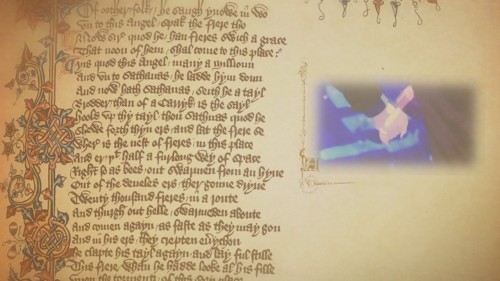 Of oother folk / he saugh ynowe in wo
Vn to this angel / spak the frere tho
Now sire quod he / han freres swich a grace
That noon of hem / shal come to this place
Yis quod this angel / many a millioun
And vn to Sathanas / he ladde hym doun
And now hath Sathanas / seith he a tayl
Brodder than of a Carryk / is the sayl
Hoold vp thy tayl / thou Sathanas quod he
Shewe forth thyn ers / and lat the frere se
Wher is the nest of freres / in this place
And er þt half a furlong wey of space
Right so as bees / out swarmen from an hyue
Out of the deueles ers / ther gonne dryue
Twenty thousand freres / in a route
And thurgh out helle / swarmeden aboute
And comen agayn / as faste as they may gon
And in his ers / they crepten euychon
He clapte his tayl agayn / and lay ful stille
This frere / whan he hadde looke al his fille
Vpon the tormentz / of this sory place